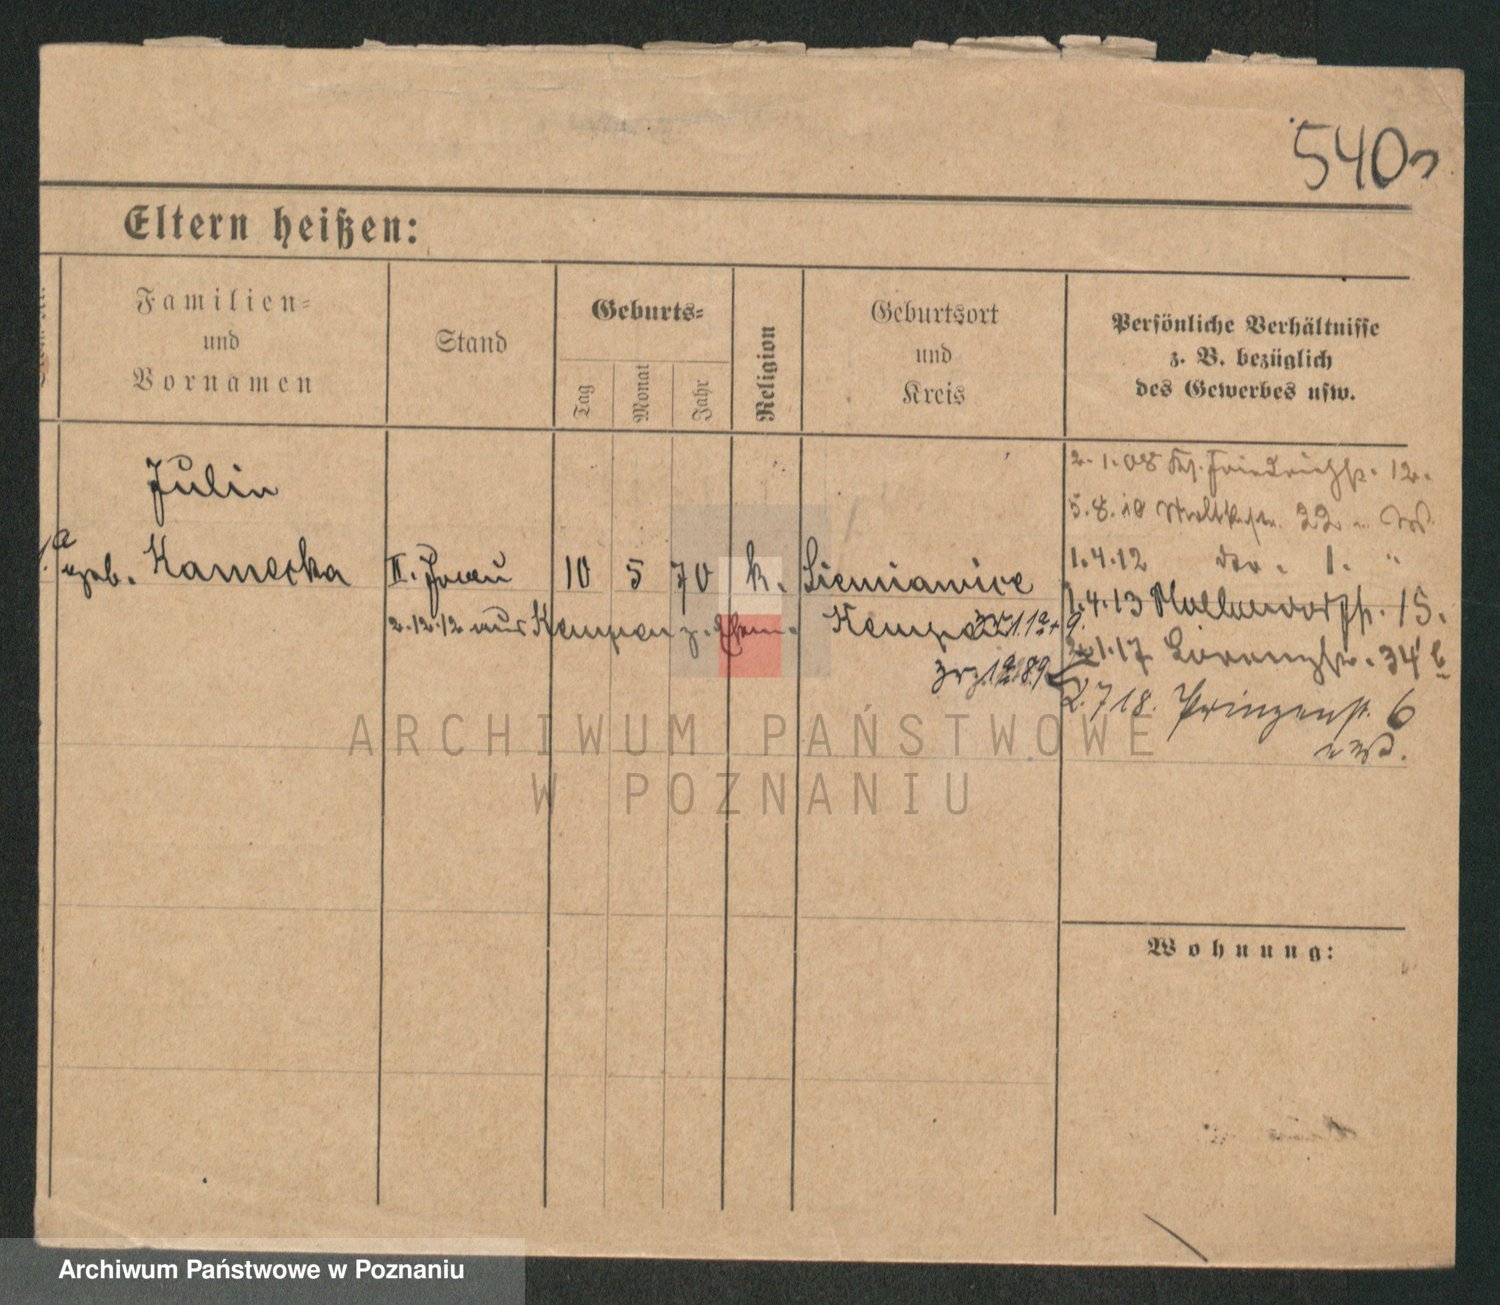 540
Eltern heißen:
Familien-
und
Vornamen
Stand
Geburts-
Tag
Monat
Jahr
Religion
Geburtsort
und
Kreis
Persönliche Verhältnisse
z. B. bezüglich
des Gewerbes usw.
Julia
geb. Kamecka
II. Frau
10
5
70
k.
Siemianice
2.12.12 aus Kempen z. Ehem.
Kempen
2.1.08 Friedrichstr. 12.
5.8.10 Moltkestr. 22
1.4.12 1. "
1.4.13 Mollendorfstr. 15.
2.1.17 34 b
2.7 18. Prinzenstr. 6
Wohnung:
ARCHIWUM PAŃSTWOWE
W POZNANIU
Archiwum Państwowe w Poznaniu